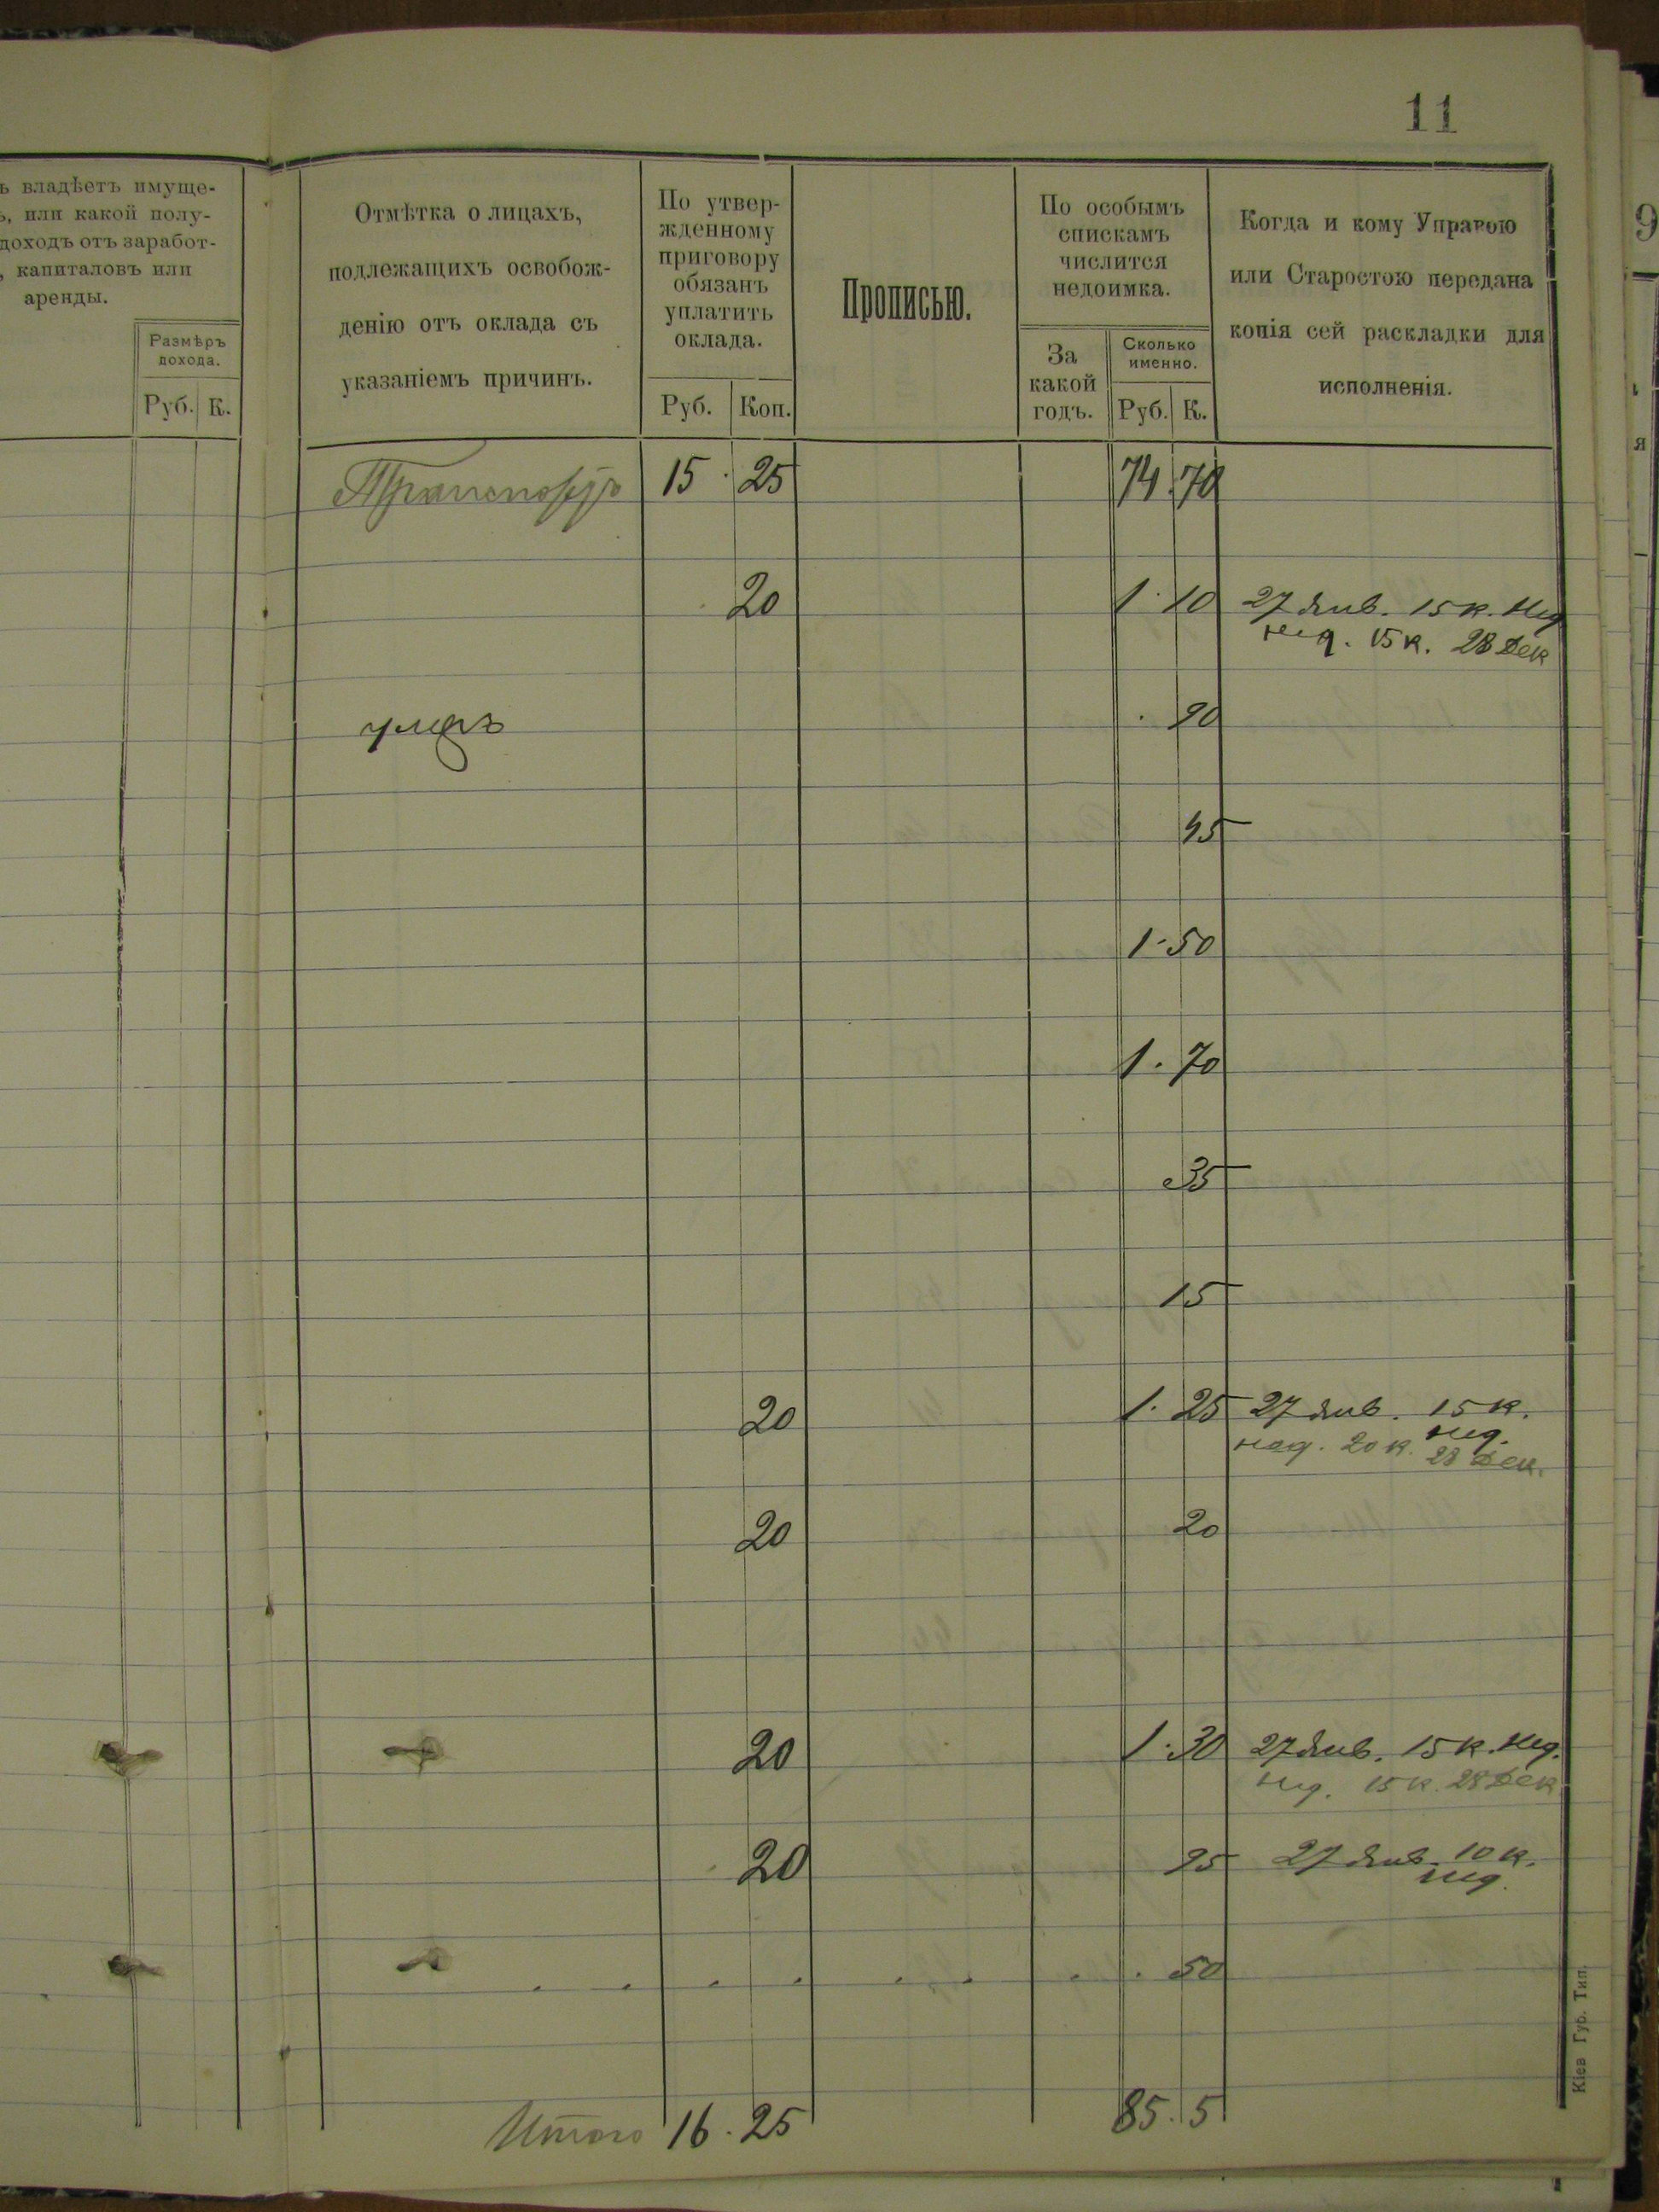 11
ъ владѣетъ имуще-
ъ, или какой полу-
доходъ отъ заработ-
, капиталовъ или
аренды.
Размѣръ
дохода.
Руб. К.
Отмѣтка о лицахъ,
подлежащихъ освобож-
денію отъ оклада съ
указаніемъ причинъ.
По утвер-
жденному
приговору
обязанъ
уплатить
оклада.
Руб. Коп.
Прописью.
По особымъ
спискамъ
числится
недоимка.
За
какой
годъ.
Сколько
именно.
Руб. К.
Когда и кому Управою
или Старостою передана
копія сей раскладки для
исполненія.
9
я
Транспортъ 15 · 25 74.70
20 1·10 27 янв. 15 к. Нед
нед. 15 к. 28 Дек
умеръ · 90
45
1·50
1·70
35
15
20 1·25 27 янв. 15 к.
нед.
нед. 20 к. 28 Дек.
20 20
20 1·30 27 янв. 15 к. Нед.
Нед. 15 к. 28 Дек
20 95 27 янв. 10 к.
нед.
. . . . . . . . 50
Итого 16·25 85·5
Кіев Губ. Тип.